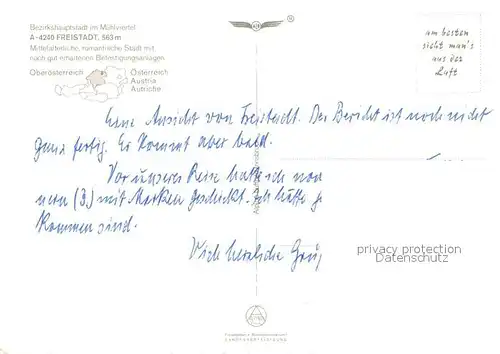 Bezirkshauptstadt im Mühlviertel
A-4240 FREISTADT, 563 m
Mittelalterliche, romantische Stadt mit
noch gut erhaltenen Befestigungsanlagen
Oberösterreich
Österreich
Austria
Autriche
am besten
sieht man's
aus der
Luft
Eine Ansicht von Freistadt. Der Bericht ist noch nicht
ganz fertig. Er kommt aber bald.
Vor unserer Reise hatte ich von
(3.) mit Marken geschickt. Ich hätte
kommen sind.
Viele herzliche
privacy protection
Datenschutz